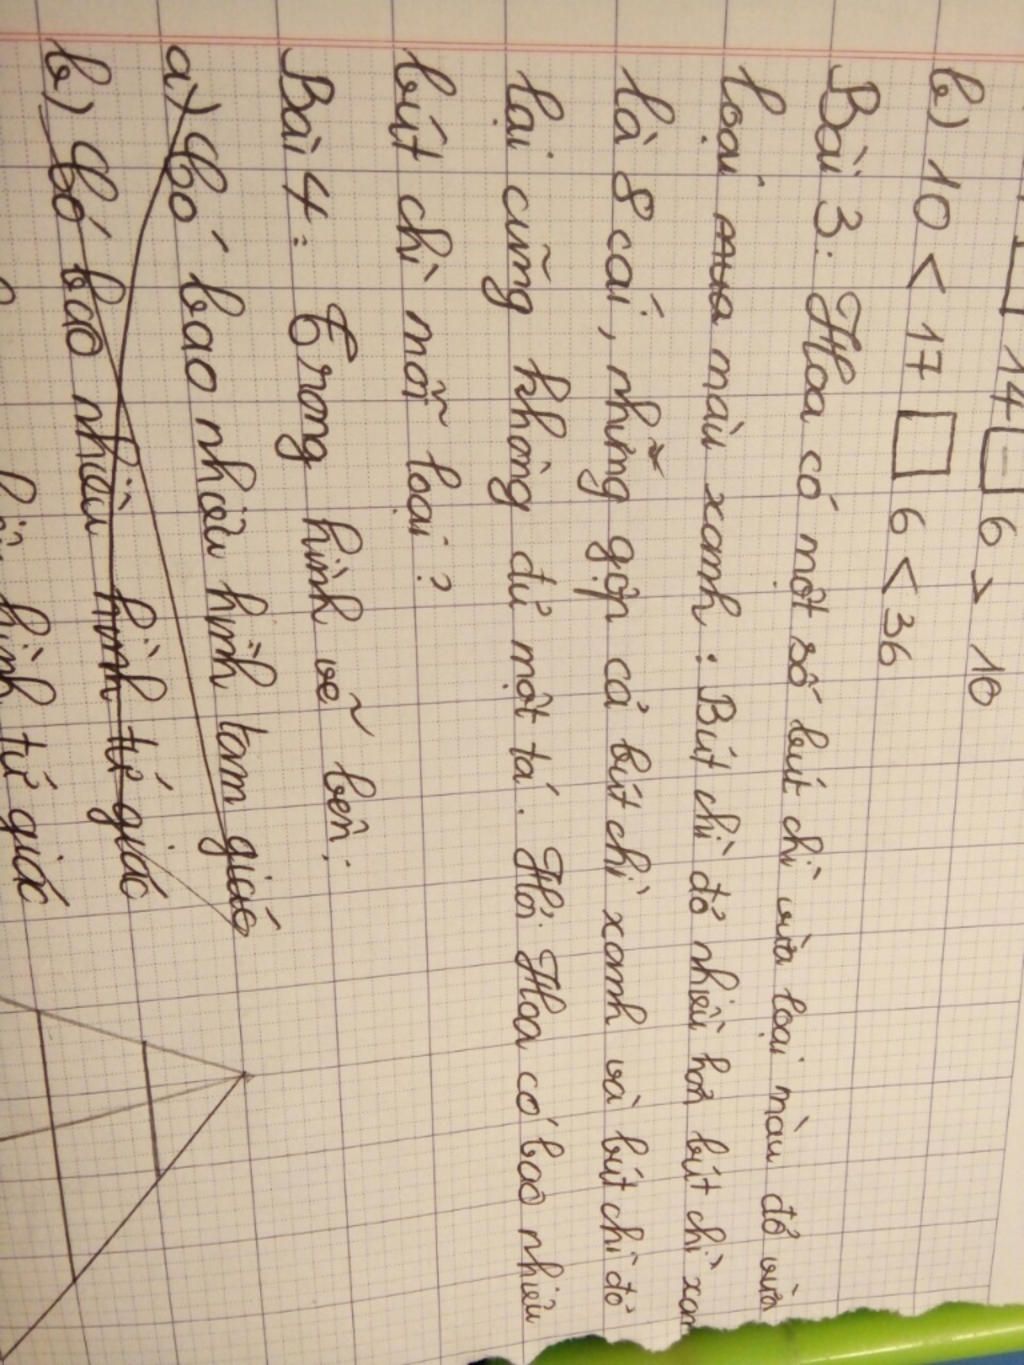 14 □ 6 > 10
b) 10 < 17 □ 6 < 36
Bài 3: Hoa có một số bút chì vừa loại màu đỏ vừa
loại màu xanh: Bút chì đỏ nhiều hơn bút chì xan
là 8 cái, nhưng gộp cả bút chì xanh và bút chì đỏ
lại cũng không đủ một tá. Hỏi Hoa có bao nhiêu
bút chì mỗi loại?
Bài 4: Trong hình vẽ bên:
a) Có bao nhiêu hình tam giác
b) Có bao nhiêu hình tứ giác
hình tứ giác